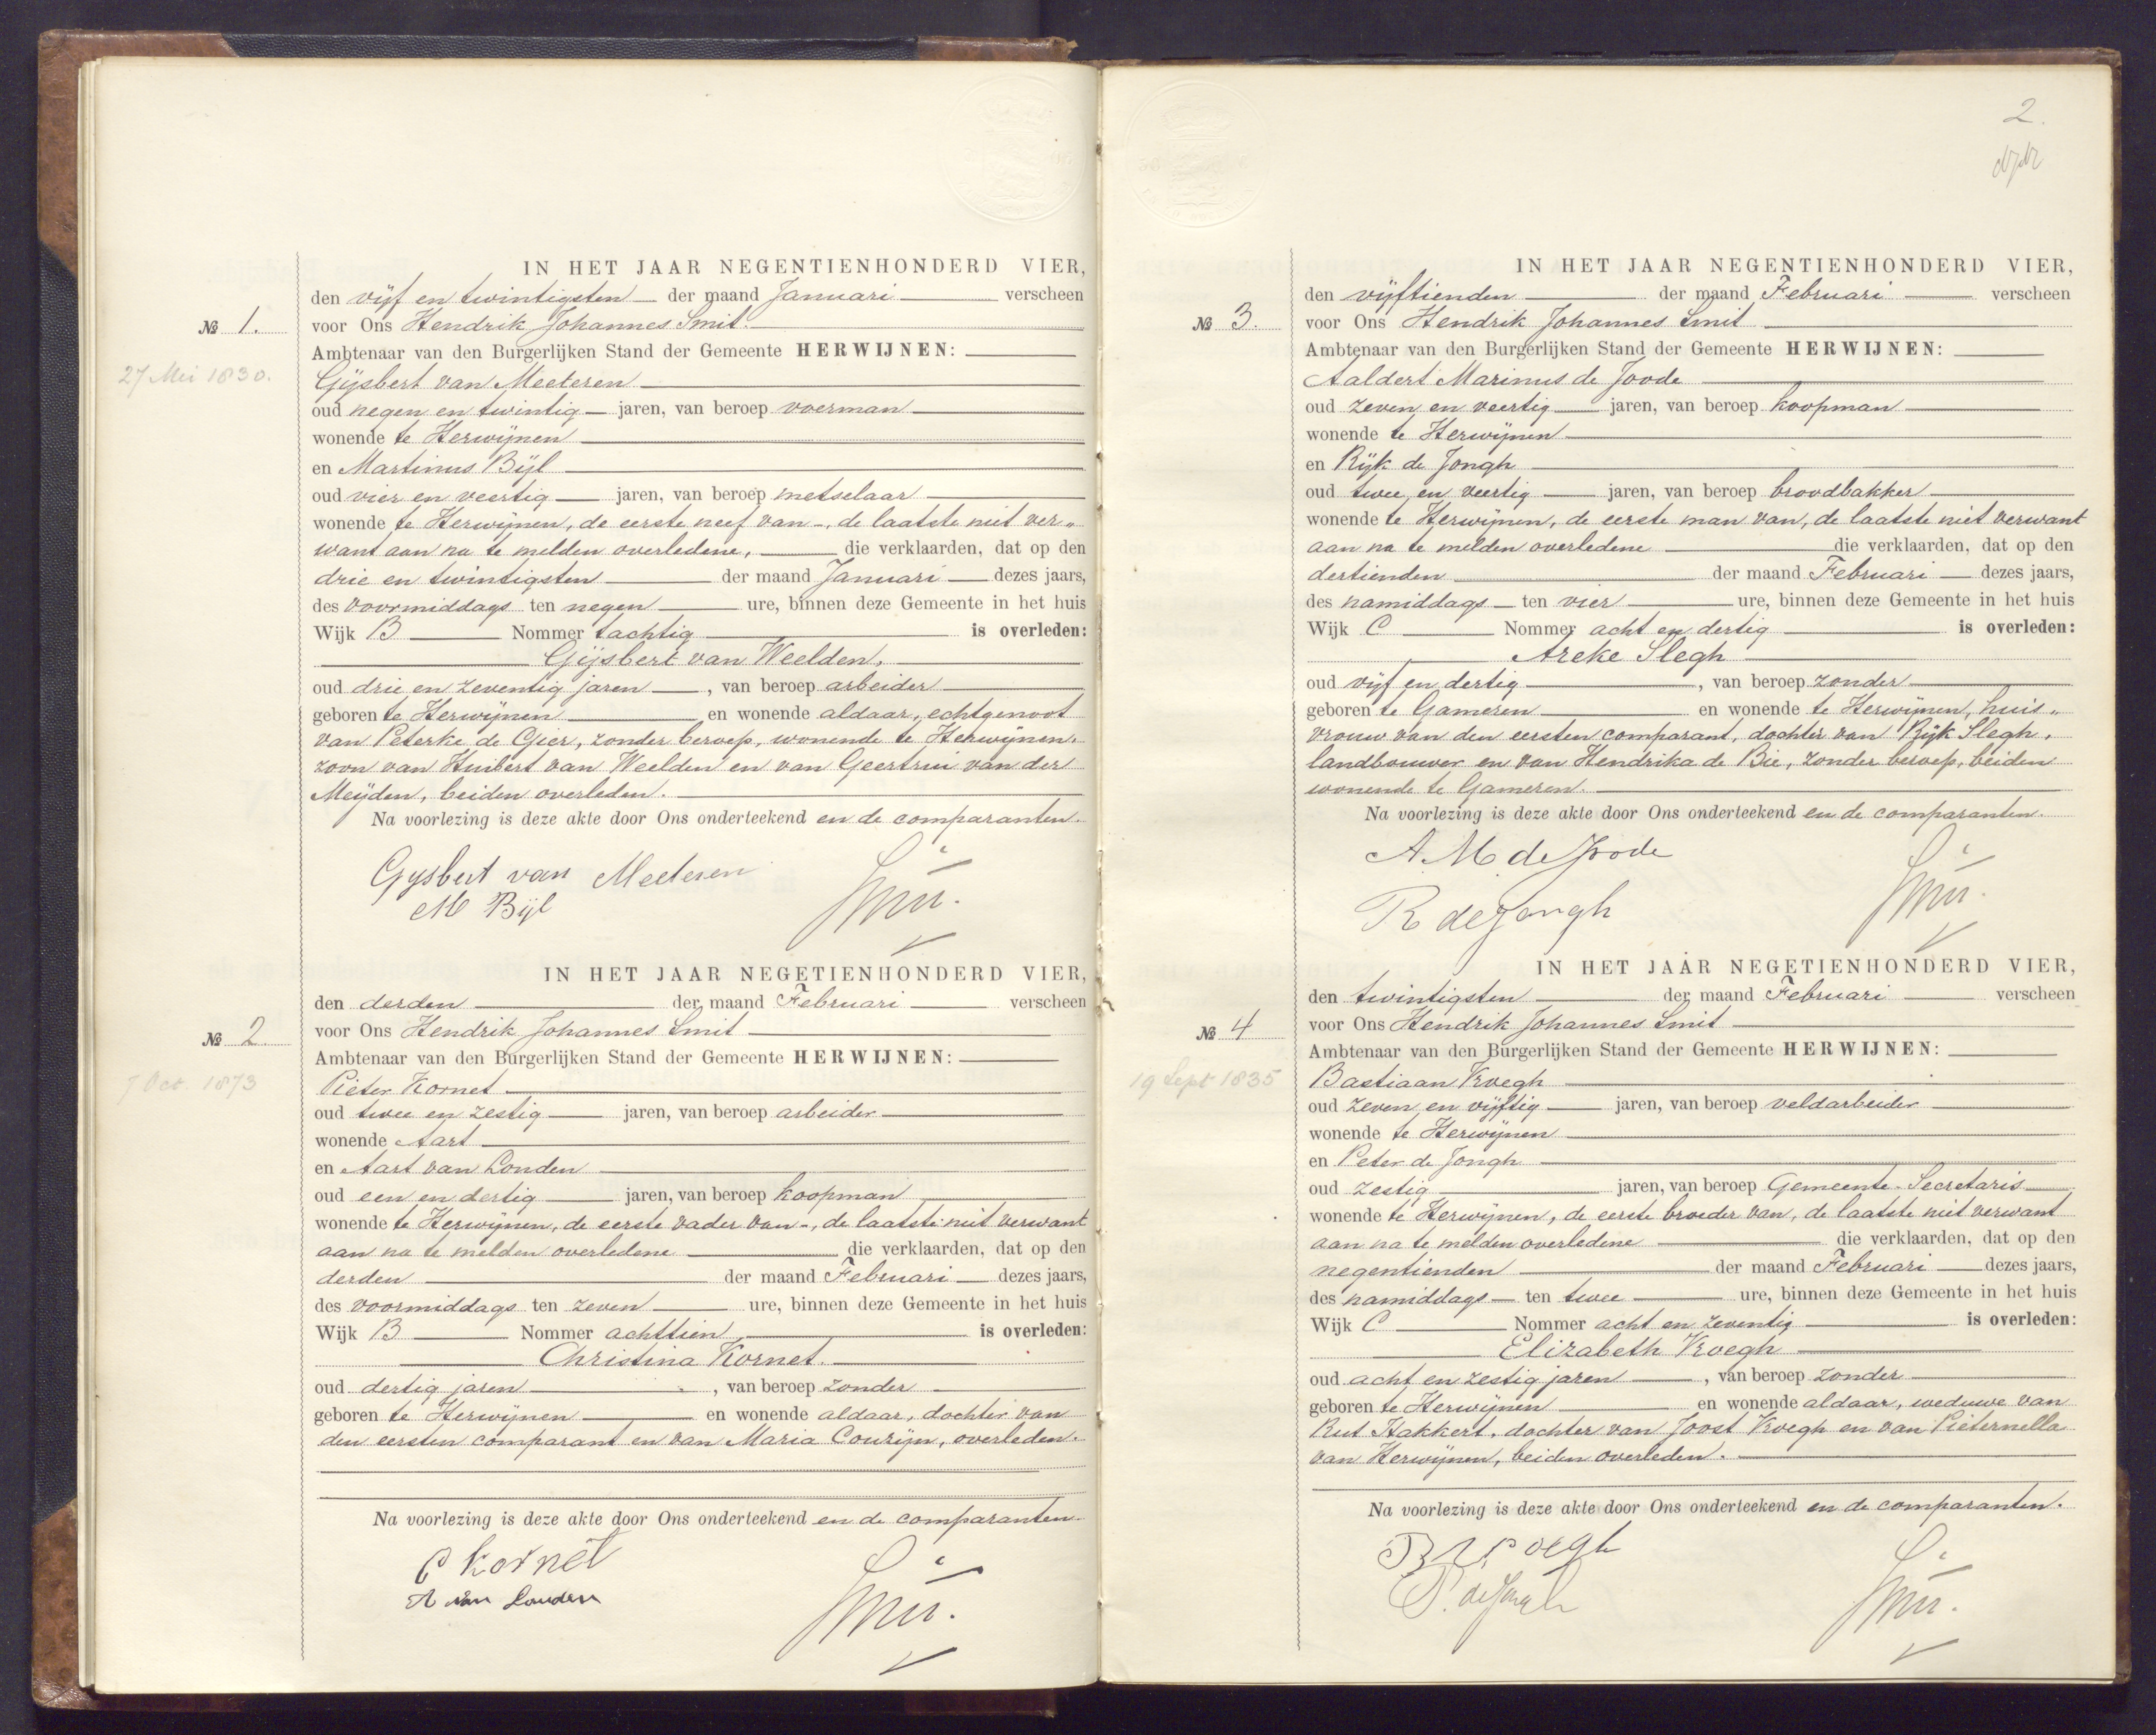 IN HET JAAR NEGENTIENHONDERD VIER,
den vijf en twintigsten der maand Januari verscheen
№ 1. voor Ons Hendrik Johannes Smit.
Ambtenaar van den Burgerlijken Stand der Gemeente HERWIJNEN:
27 Mei 1830. Gijsbert van Meeteren
oud negen en twintig jaren, van beroep voerman
wonende te Herwijnen
en Martinus Bijl
oud vier en veertig jaren, van beroep metselaar
wonende te Herwijnen, de eerste neef van -, de laatste niet ver„
want aan na te melden overledene, die verklaarden, dat op den
drie en twintigsten der maand Januari dezes jaars,
des voormiddags ten negen ure, binnen deze Gemeente in het huis
Wijk B Nommer tachtig is overleden:
Gijsbert van Weelden,
oud drie en zeventig jaren, van beroep arbeider
geboren te Herwijnen en wonende aldaar, echtgenoot
van Peterke de Gier, zonder beroep, wonende te Herwijnen,
zoon van Huibert van Weelden en van Geertrui van der
Meijden, beiden overleden.
Na voorlezing is deze akte door Ons onderteekend en de comparanten.
Gysbert van Meeteren
M Bijl
Smit.
IN HET JAAR NEGETIENHONDERD VIER,
den derden der maand Februari verscheen
№ 2 voor Ons Hendrik Johannes Smit
Ambtenaar van den Burgerlijken Stand der Gemeente HERWIJNEN:
7 Oct. 1873 Pieter Kornet
oud twee en zestig jaren, van beroep arbeider
wonende Aart
en Aart van Londen
oud een en dertig jaren, van beroep koopman
wonende te Herwijnen, de eerste vader van -, de laatste niet verwant
aan na te melden overledene die verklaarden, dat op den
derden der maand Februari dezes jaars,
des voormiddags ten zeven ure, binnen deze Gemeente in het huis
Wijk B Nommer achttien, is overleden:
Christina Kornet.
oud dertig jaren, van beroep zonder
geboren te Herwijnen en wonende aldaar, dochter van
den eersten comparant en van Maria Courijn, overleden.
Na voorlezing is deze akte door Ons onderteekend en de comparanten.
P Kornet
A van Londen
Smit.
2.
IN HET JAAR NEGENTIENHONDERD VIER,
den vijftienden der maand Februari verscheen
№ 3. voor Ons Hendrik Johannes Smit
Ambtenaar van den Burgerlijken Stand der Gemeente HERWIJNEN:
Aaldert Marinus de Joode
oud zeven en veertig jaren, van beroep koopman
wonende te Herwijnen
en Rijk de Jongh
oud twee en veertig jaren, van beroep broodbakker
wonende te Herwijnen, de eerste man van, de laatste niet verwant
aan na te melden overledene die verklaarden, dat op den
dertienden der maand Februari dezes jaars,
des namiddags ten vier ure, binnen deze Gemeente in het huis
Wijk C Nommer acht en dertig is overleden:
Areke Slegh
oud vijf en dertig, van beroep zonder
geboren te Gameren en wonende te Herwijnen, huis„
vrouw van den eersten comparant, dochter van Rijk Slegh,
landbouwer en van Hendrika de Bie, zonder beroep, beiden
wonende te Gameren.
Na voorlezing is deze akte door Ons onderteekend en de comparanten.
A. M. de Joode
R de Jongh
Smit.
IN HET JAAR NEGETIENHONDERD VIER,
den twintigsten der maand Februari verscheen
№ 4 voor Ons Hendrik Johannes Smit
Ambtenaar van den Burgerlijken Stand der Gemeente HERWIJNEN:
19 Sept 1835 Bastiaan Kroegh
oud zeven en vijftig jaren, van beroep veldarbeider
wonende te Herwijnen
en Peter de Jongh
oud zestig jaren, van beroep Gemeente-Secretaris
wonende te Herwijnen, de eerste broeder van, de laatste niet verwant
aan na te melden overledene die verklaarden, dat op den
negentienden der maand Februari dezes jaars,
des namiddags ten twee ure, binnen deze Gemeente in het huis
Wijk C Nommer acht en zeventig is overleden:
Elizabeth Kroegh
oud acht en zestig jaren, van beroep zonder
geboren te Herwijnen en wonende aldaar, weduwe van
Rut Hakkert, dochter van Joost Kroegh en van Pieternella
van Herwijnen, beiden overleden.
Na voorlezing is deze akte door Ons onderteekend en de comparanten.
B Kroegh
P. de Jongh
Smit.